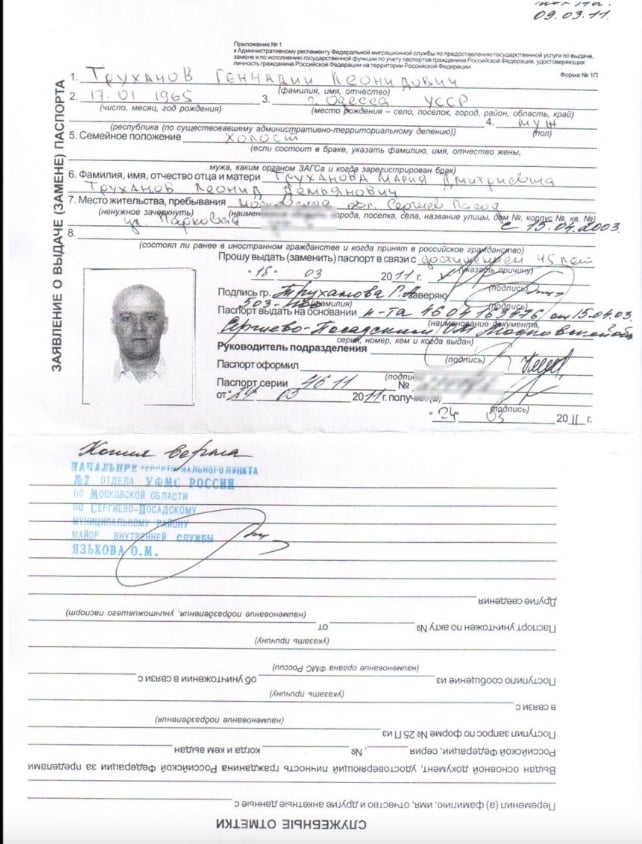 09.03.11
Приложение № 1
к Административному регламенту Федеральной миграционной службы по предоставлению государственной услуги по выдаче,
замене и по исполнению государственной функции по учету паспортов гражданина Российской Федерации, удостоверяющих
личность гражданина Российской Федерации на территории Российской Федерации
Форма № 1П
ЗАЯВЛЕНИЕ О ВЫДАЧЕ (ЗАМЕНЕ) ПАСПОРТА
1. Труханов Геннадий Леонидович
(фамилия, имя, отчество)
2. 17.01 1965 3. г. Одесса УССР
(число, месяц, год рождения) (место рождения – село, поселок, город, район, область, край)
4. муж
(республика (по существовавшему административно-территориальному делению)) (пол)
5. Семейное положение холост
(если состоит в браке, указать фамилию, имя, отчество жены,
мужа, каким органом ЗАГСа и когда зарегистрирован брак)
6. Фамилия, имя, отчество отца и матери Труханова Мария Дмитриевна
Труханов Леонид Демьянович
7. Место жительства, пребывания Московская обл. Сергиев Посад
(ненужное зачеркнуть) города, поселка, села, название улицы, дом №, корпус №, кв. №)
ул. Парковая с 15.04.2003
8.
(состоял ли ранее в иностранном гражданстве и когда принят в российское гражданство)
Прошу выдать (заменить) паспорт в связи с достижением 45 лет
(указать причину)
"15" 03 2011 г.
(подпись)
Подпись гр. Труханова Г.Л. заверяю
(фамилия) (подпись)
Паспорт выдать на основании от 15.04.03
(наименование документа,
Сергиево-Посадским ОМ Московской обл
серия, номер, кем и когда выдан)
Руководитель подразделения
(подпись)
Паспорт оформил
(подпись)
Паспорт серии 46 11 №
от "24" 03 2011 г. получил(а)
(подпись)
"24" 03 2011 г.
Копия верна
НАЧАЛЬНИК ТЕРРИТОРИАЛЬНОГО ПУНКТА
№2 ОТДЕЛА УФМС РОССИИ
ПО МОСКОВСКОЙ ОБЛАСТИ
ПО СЕРГИЕВО-ПОСАДСКОМУ
МУНИЦИПАЛЬНОМУ РАЙОНУ
МАЙОР ВНУТРЕННЕЙ СЛУЖБЫ
ЯЗЬКОВА О.М.
СЛУЖЕБНЫЕ ОТМЕТКИ
Переменил (а) фамилию, имя, отчество и другие анкетные данные с
Выдан основной документ, удостоверяющий личность гражданина Российской Федерации за пределами
Российской Федерации, серия , № когда и кем выдан
Поступил запрос по форме № 25 П из
(наименование подразделения)
в связи с
(указать причину)
Поступило сообщение из об уничтожении в связи с
(наименование органа ФМС России)
(указать причину)
Паспорт уничтожен по акту № от
(наименование подразделения, уничтожившего паспорт)
Другие сведения